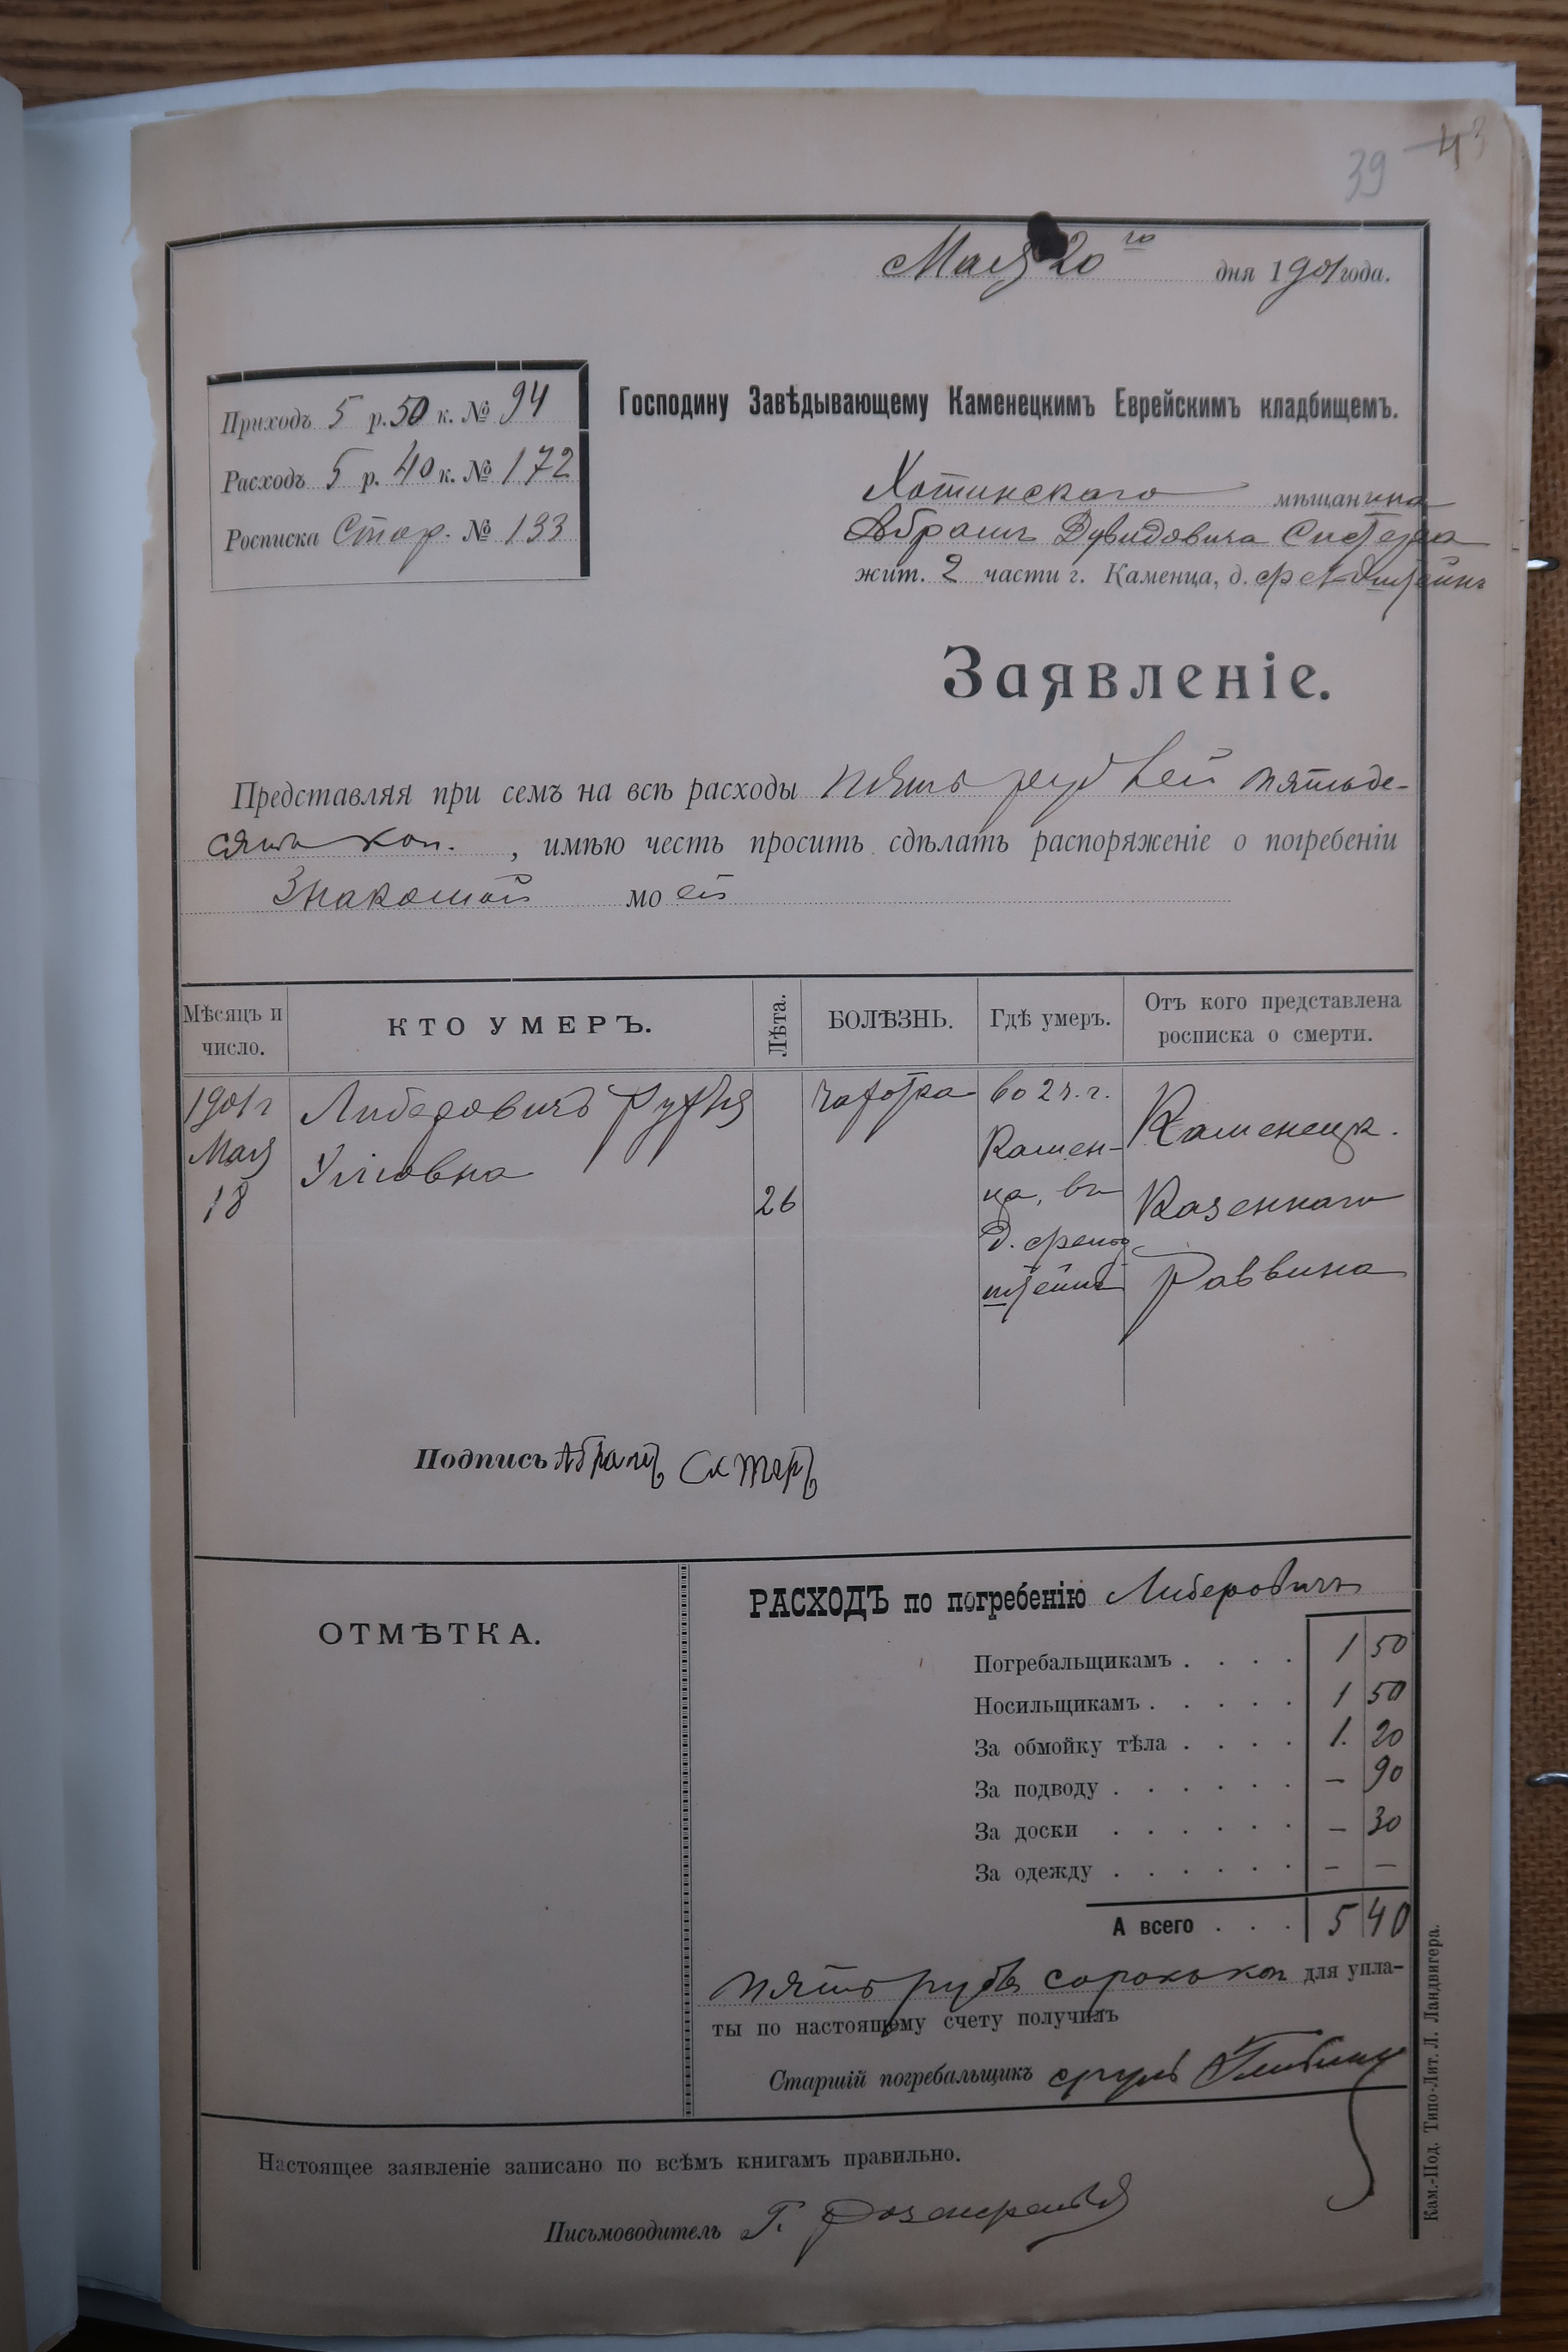 39 43
Мая 20 го дня 1901 года.
Приходъ 5 р. 50 к. № 94
Расходъ 5 р. 40 к. № 172
Росписка Стар. № 133
Господину Завѣдывающему Каменецкимъ Еврейскимъ кладбищемъ.
Хотинскаго мѣщанина
Абрама Дувидовича
жит. 2 части г. Каменца, д.
Заявленіе.
Представляя при семъ на всѣ расходы пять рублей пятьде-
сятъ коп. , имѣю честь просить сдѣлать распоряженіе о погребеніи
Знакомой моей
Мѣсяцъ и число. КТО УМЕРЪ. Лѣта. БОЛѢЗНЬ. Гдѣ умеръ. Отъ кого представлена росписка о смерти.
1901 г Либеровичъ Рухля чахотка во 2 ч. г. Каменецк.
Мая Камен-
18 26 ца, въ Казеннаго
д.
штейнъ Раввина
Подпись Абрамъ
ОТМѢТКА.
РАСХОДЪ по погребенію Либеровичъ
Погребальщикамъ . . . . 1 50
Носильщикамъ . . . . . 1 50
За обмойку тѣла . . . . 1. 20
За подводу . . . . . . — 90
За доски . . . . . . — 30
За одежду . . . . . . — —
А всего . . . 5 40
пять руб. сорокъ коп для упла-
ты по настоящему счету получилъ
Старшій погребальщикъ
Настоящее заявленіе записано по всѣмъ книгамъ правильно.
Письмоводитель Г.
Кам.-Под. Типо-Лит. Л. Ландвигера.